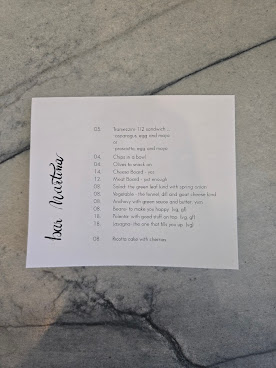 Bar Martina
03. Tramezzini 1/2 sandwich ..
-asparagus, egg and mayo
or
-prosciutto, egg and mayo
04. Chips in a bowl
04. Olives to snack on
14. Cheese Board -
12. Meat Board - just enough
08. Salad- the green leaf kind with spring onion
09. Vegetable - the fennel, dill and goat cheese kind
09. Anchovy with green sauce and butter,
Beans- to make you happy (vg, gf)
16. Polenta- with good stuff on top (vg, gf)
18. Lasagna- the one that fills you up (vg)
08. Ricotta cake with cherries